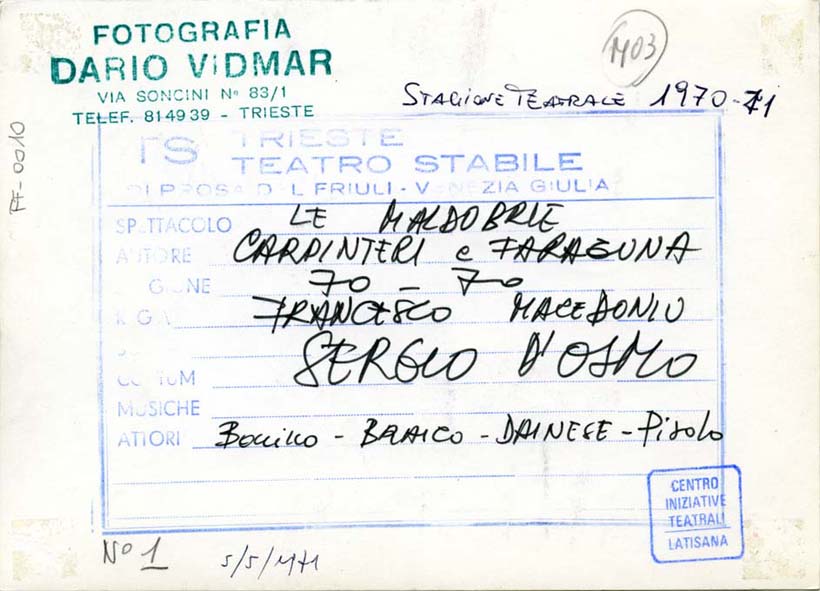 FOTOGRAFIA
DARIO VIDMAR
VIA SONCINI Nº 83/1
TELEF. 814939 - TRIESTE
1403
STAGIONE TEATRALE 1970-71
FF-0010
TS TRIESTE
TEATRO STABILE
DI PROSA DEL FRIULI - VENEZIA GIULIA
SPETTACOLO LE MALDOBRIE
AUTORE CARPINTERI e FARAGUNA
GIONE 70-70
REGIA FRANCESCO MACEDONIO
SERGIO D'OSMO
COSTUMI
MUSICHE
ATTORI Bonino - BRAICO - DAINESE - Pisolo
CENTRO
INIZIATIVE
TEATRALI
LATISANA
Nº 1
5/5/1971